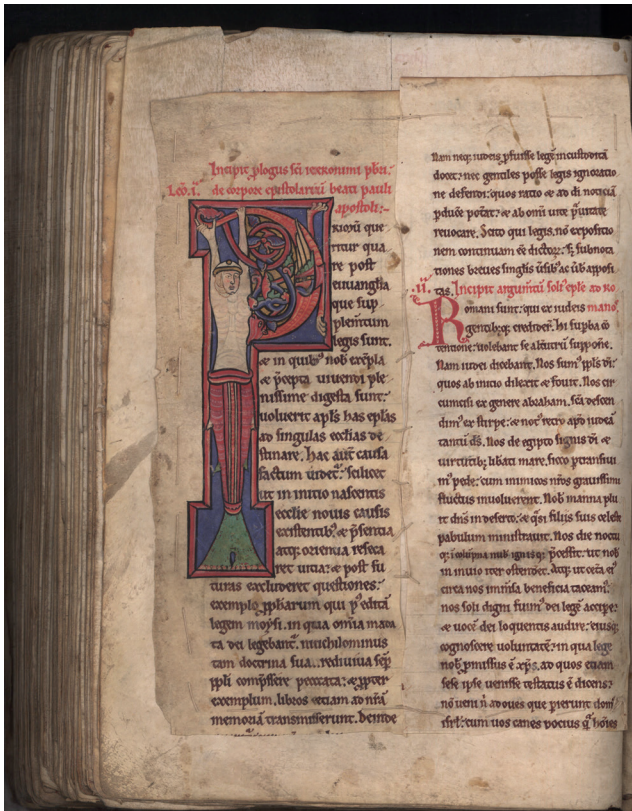 Incipit plogus sci ieronimi pbri
de corpore epistolarum beati pauli
apostoli:-
P
rioru que
ritur qua
re post
euuanglia
que sup
plemtum
legis sunt.
⁊ in quibꝰ nob exepla
⁊ pcepta uiuendi ple
nissime digesta sunt:
uoluerit apls has eplas
ad singulas ecclias de
stinare. hac aut causa
factum uidet: scilicet
ut in initio nascentis
ecclie nouis causis
existentibꝰ ⁊ psentia
atqꝫ orientia reseca
ret uitia: ⁊ post fu
turas excluderet questiones:
exemplo ppharum qui pꝰ edita
legem moysi. in qua omia mada
ta dei legebant. nichilominus
tam doctrina sua rediuiua sep
ppli compssere peccata: ⁊ ppter
exemplum. libros etiam ad nra
memoria transmisserunt. Deinde
Nam neqꝫ iudeis pfuisse lege incustodita
docet: nec gentiles posse legis ignoratio
ne defendi: quos ratio ⁊ ad di noticia
pduce potat: ⁊ ab omi uite prauitate
reuocare. Scito qui legis. no expositio
nem continuam ee dictoꝝ: sꝫ subnota
tiones breues singlis uersibꝰ ac ubis apposi
tas. Incipit argumtu solt eple ad Ro
Romani sunt: qui ex iudeis mano
gentibꝫqꝫ crediderꝰ. hi supba co
tentione: uolebant se alterutru suppone.
Nam iudei dicebant. Nos sumꝰ ppls di:
quos ab inicio dilexit ⁊ fouit. Nos cir
cumcisi ex genere abraham. sca descen
dimꝰ ex stirpe: ⁊ notꝰ retro apd iudea
tantu ds. Nos de egipto signis di ⁊
uirtutibꝫ libati mare. sicco ptransiui
mꝰ pede: cum inimicos nros grauissimi
fluctus inuoluerent. Nob manna plu
it dns in deserto: ⁊ qsi filiis suis celeste
pabulum ministrauit. Nos die noctu
qꝫ i columpna nub ignisqꝫ pcessit: ut nob
in inuio iter ostendet. Atqꝫ ut cetera eiꝰ
circa nos immsa beneficia taceamꝰ:
nos soli digni fuimꝰ dei lege accipe:
⁊ uoce dei loquentis audire: eiusqꝫ
cognoscere uoluntate: in qua lege
nob pmissus e xps. ad quos etiam
sese ipse uenisse testatus e dicens:
no ueni n ad oues que pierunt domꝰ
isrl: cum uos canes pocius q hoies